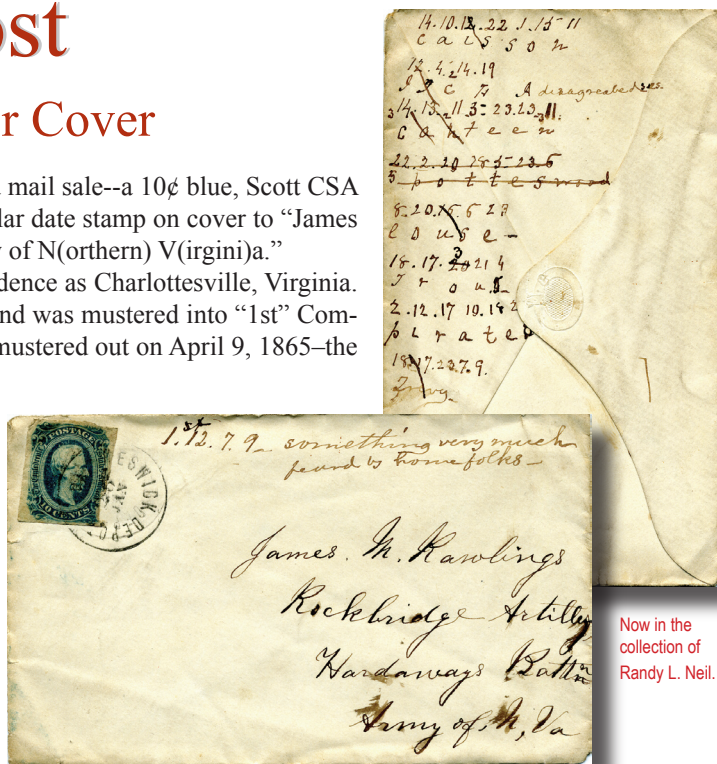 ost
r Cover
mail sale--a 10¢ blue, Scott CSA
lar date stamp on cover to “James
of N(orthern) V(irgini)a.”
dence as Charlottesville, Virginia.
nd was mustered into “1st” Com-
mustered out on April 9, 1865–the
14.10.12.22 1.15 11
c a i s s o n
12.4.2 14.19
A disagreable
3 14.13.2 11 3. 23.23.11.
c a n t e e n
22.2.20 28 5 23.6
5 p o t t e s w o o d
8.20.15.6 23
l o u s e -
18.17. 3 21 4
2.12.17 19.18 2
p i r a t e
18.17.23.7.9.
POSTAGE
TEN CENTS
ESWICK DEPOT
1.12.7.9_ something very much
feard by home folks_
James. M. Rawlings
Rockbridge Artillery
Hardaways Battn
Army of, N, Va
Now in the
collection of
Randy L. Neil.